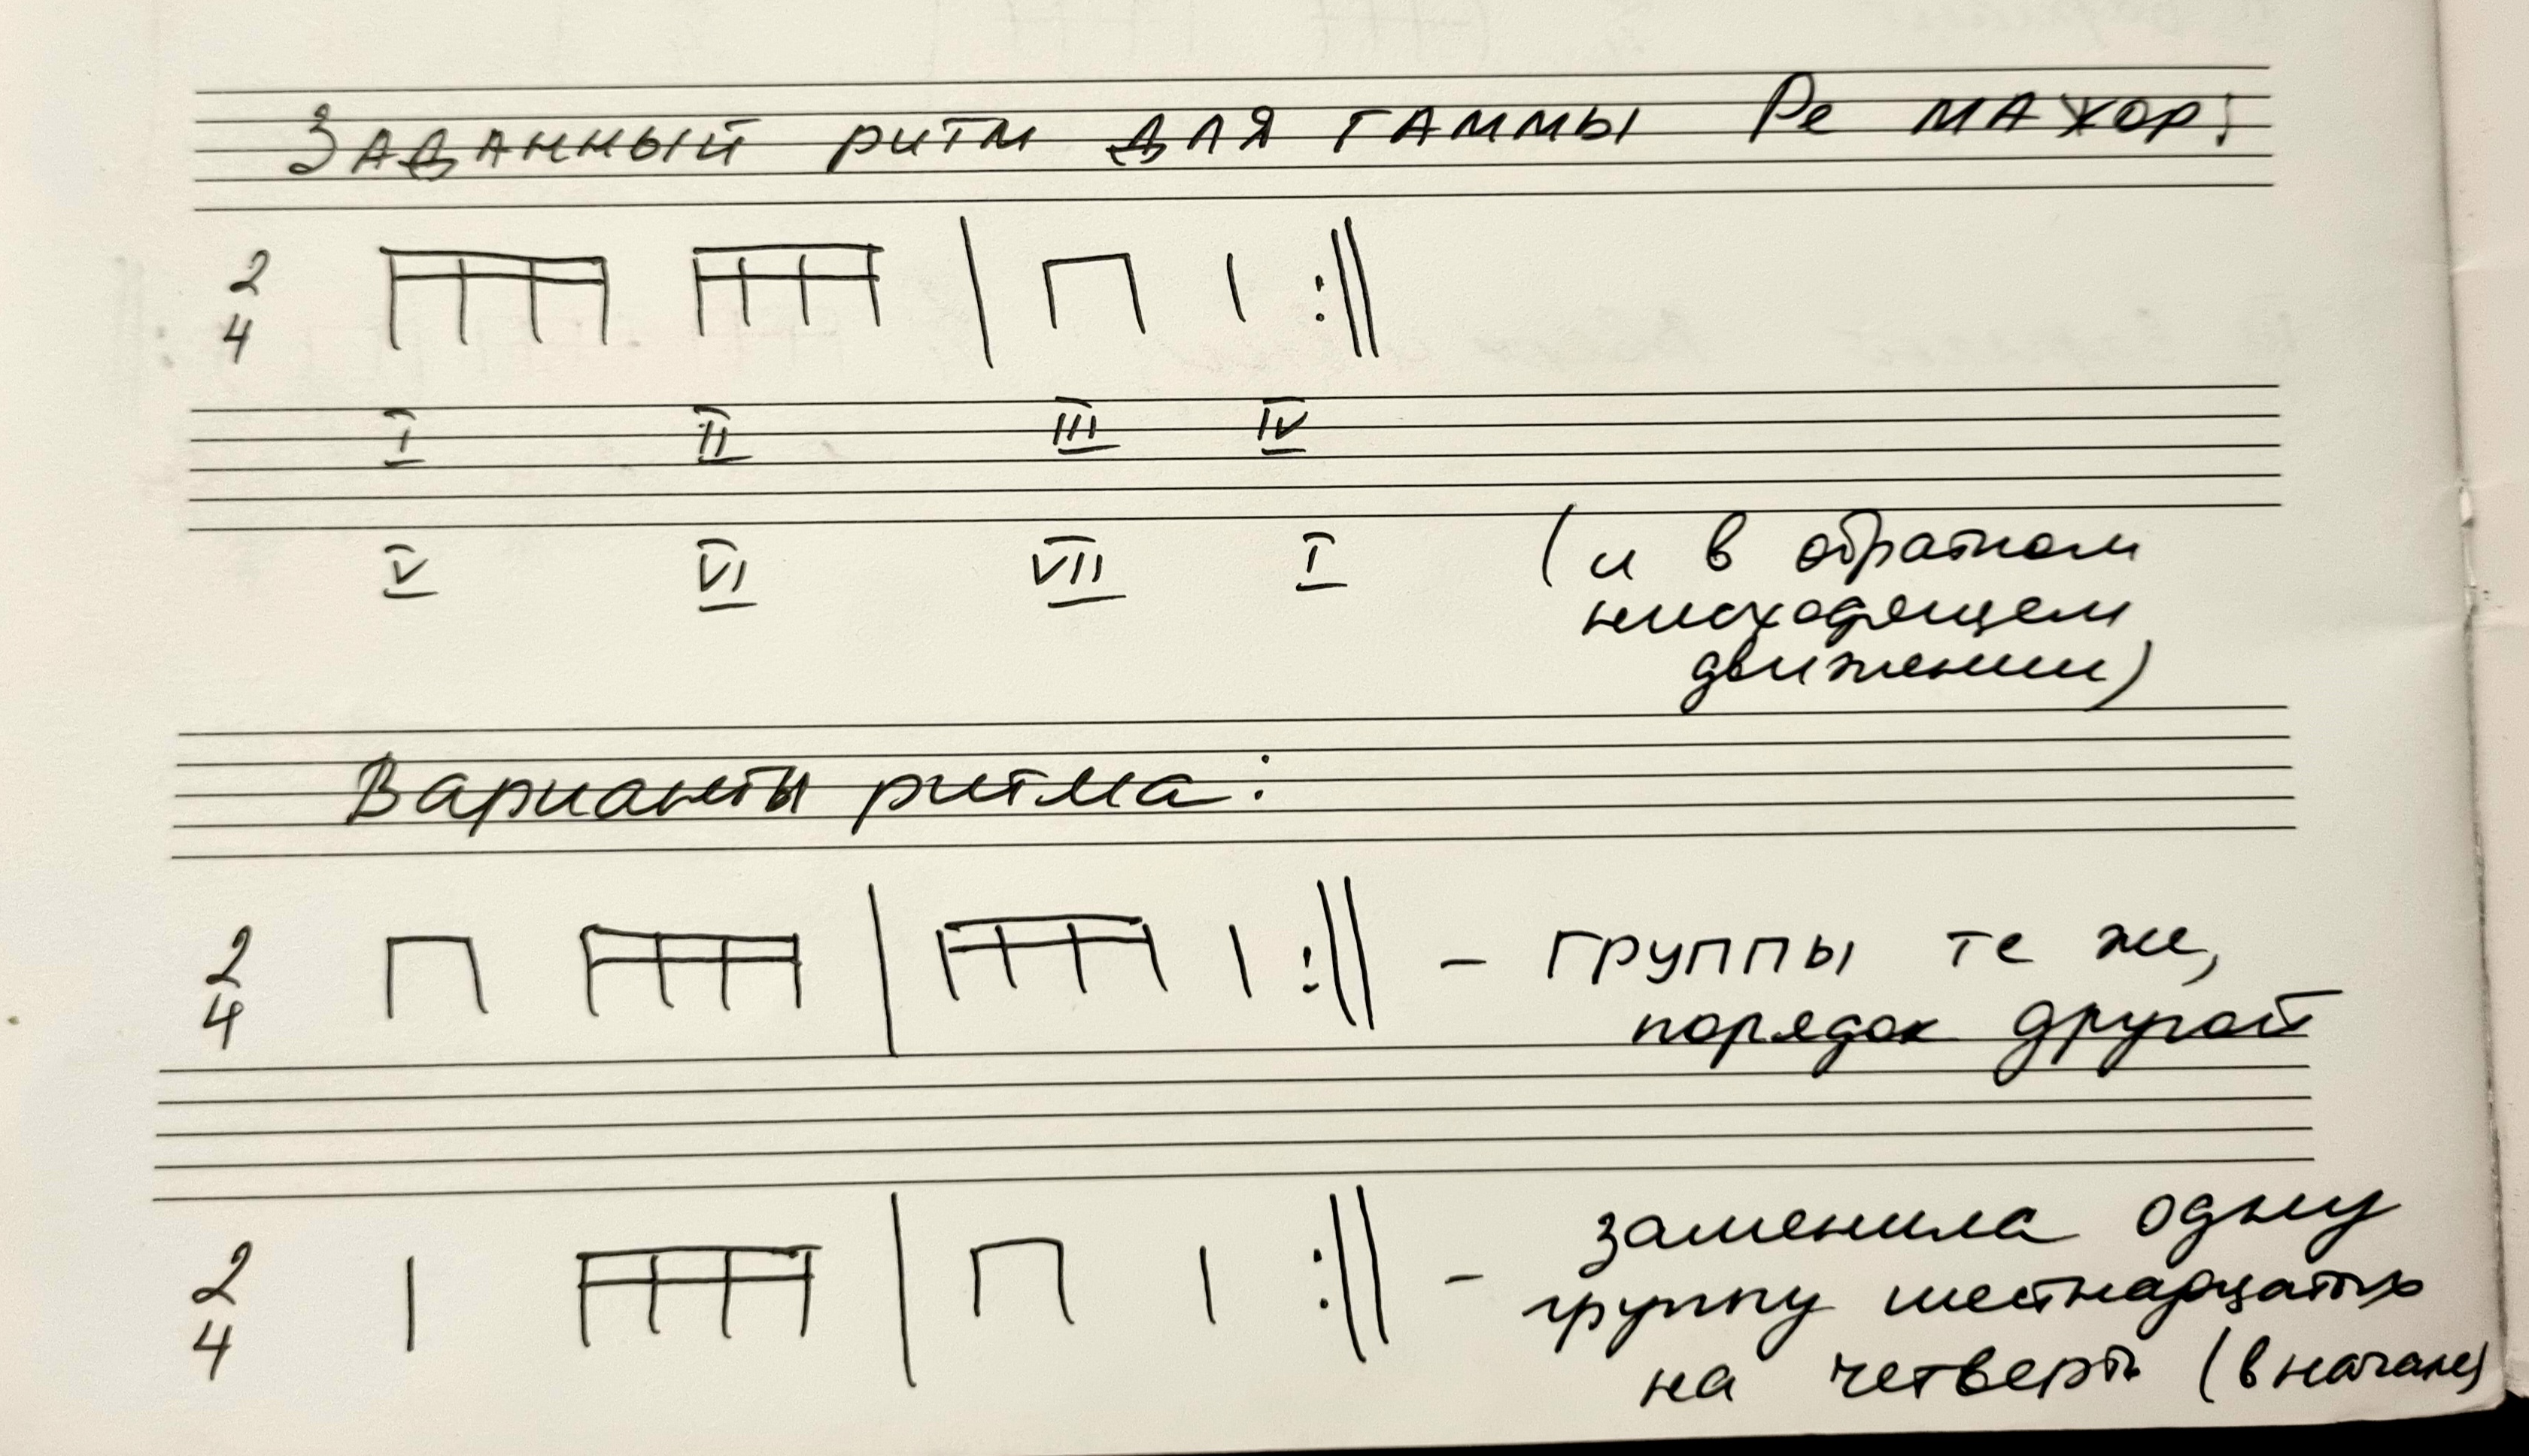 Заданный ритм для гаммы Ре мажор:
2
4
I II III IV
V VI VII I (и в обратном
нисходящем
движении)
Варианты ритма:
2
4
- группы те же,
порядок другой
2
4
- заменила одну
группу шестнадцатых
на четверть (в начале)